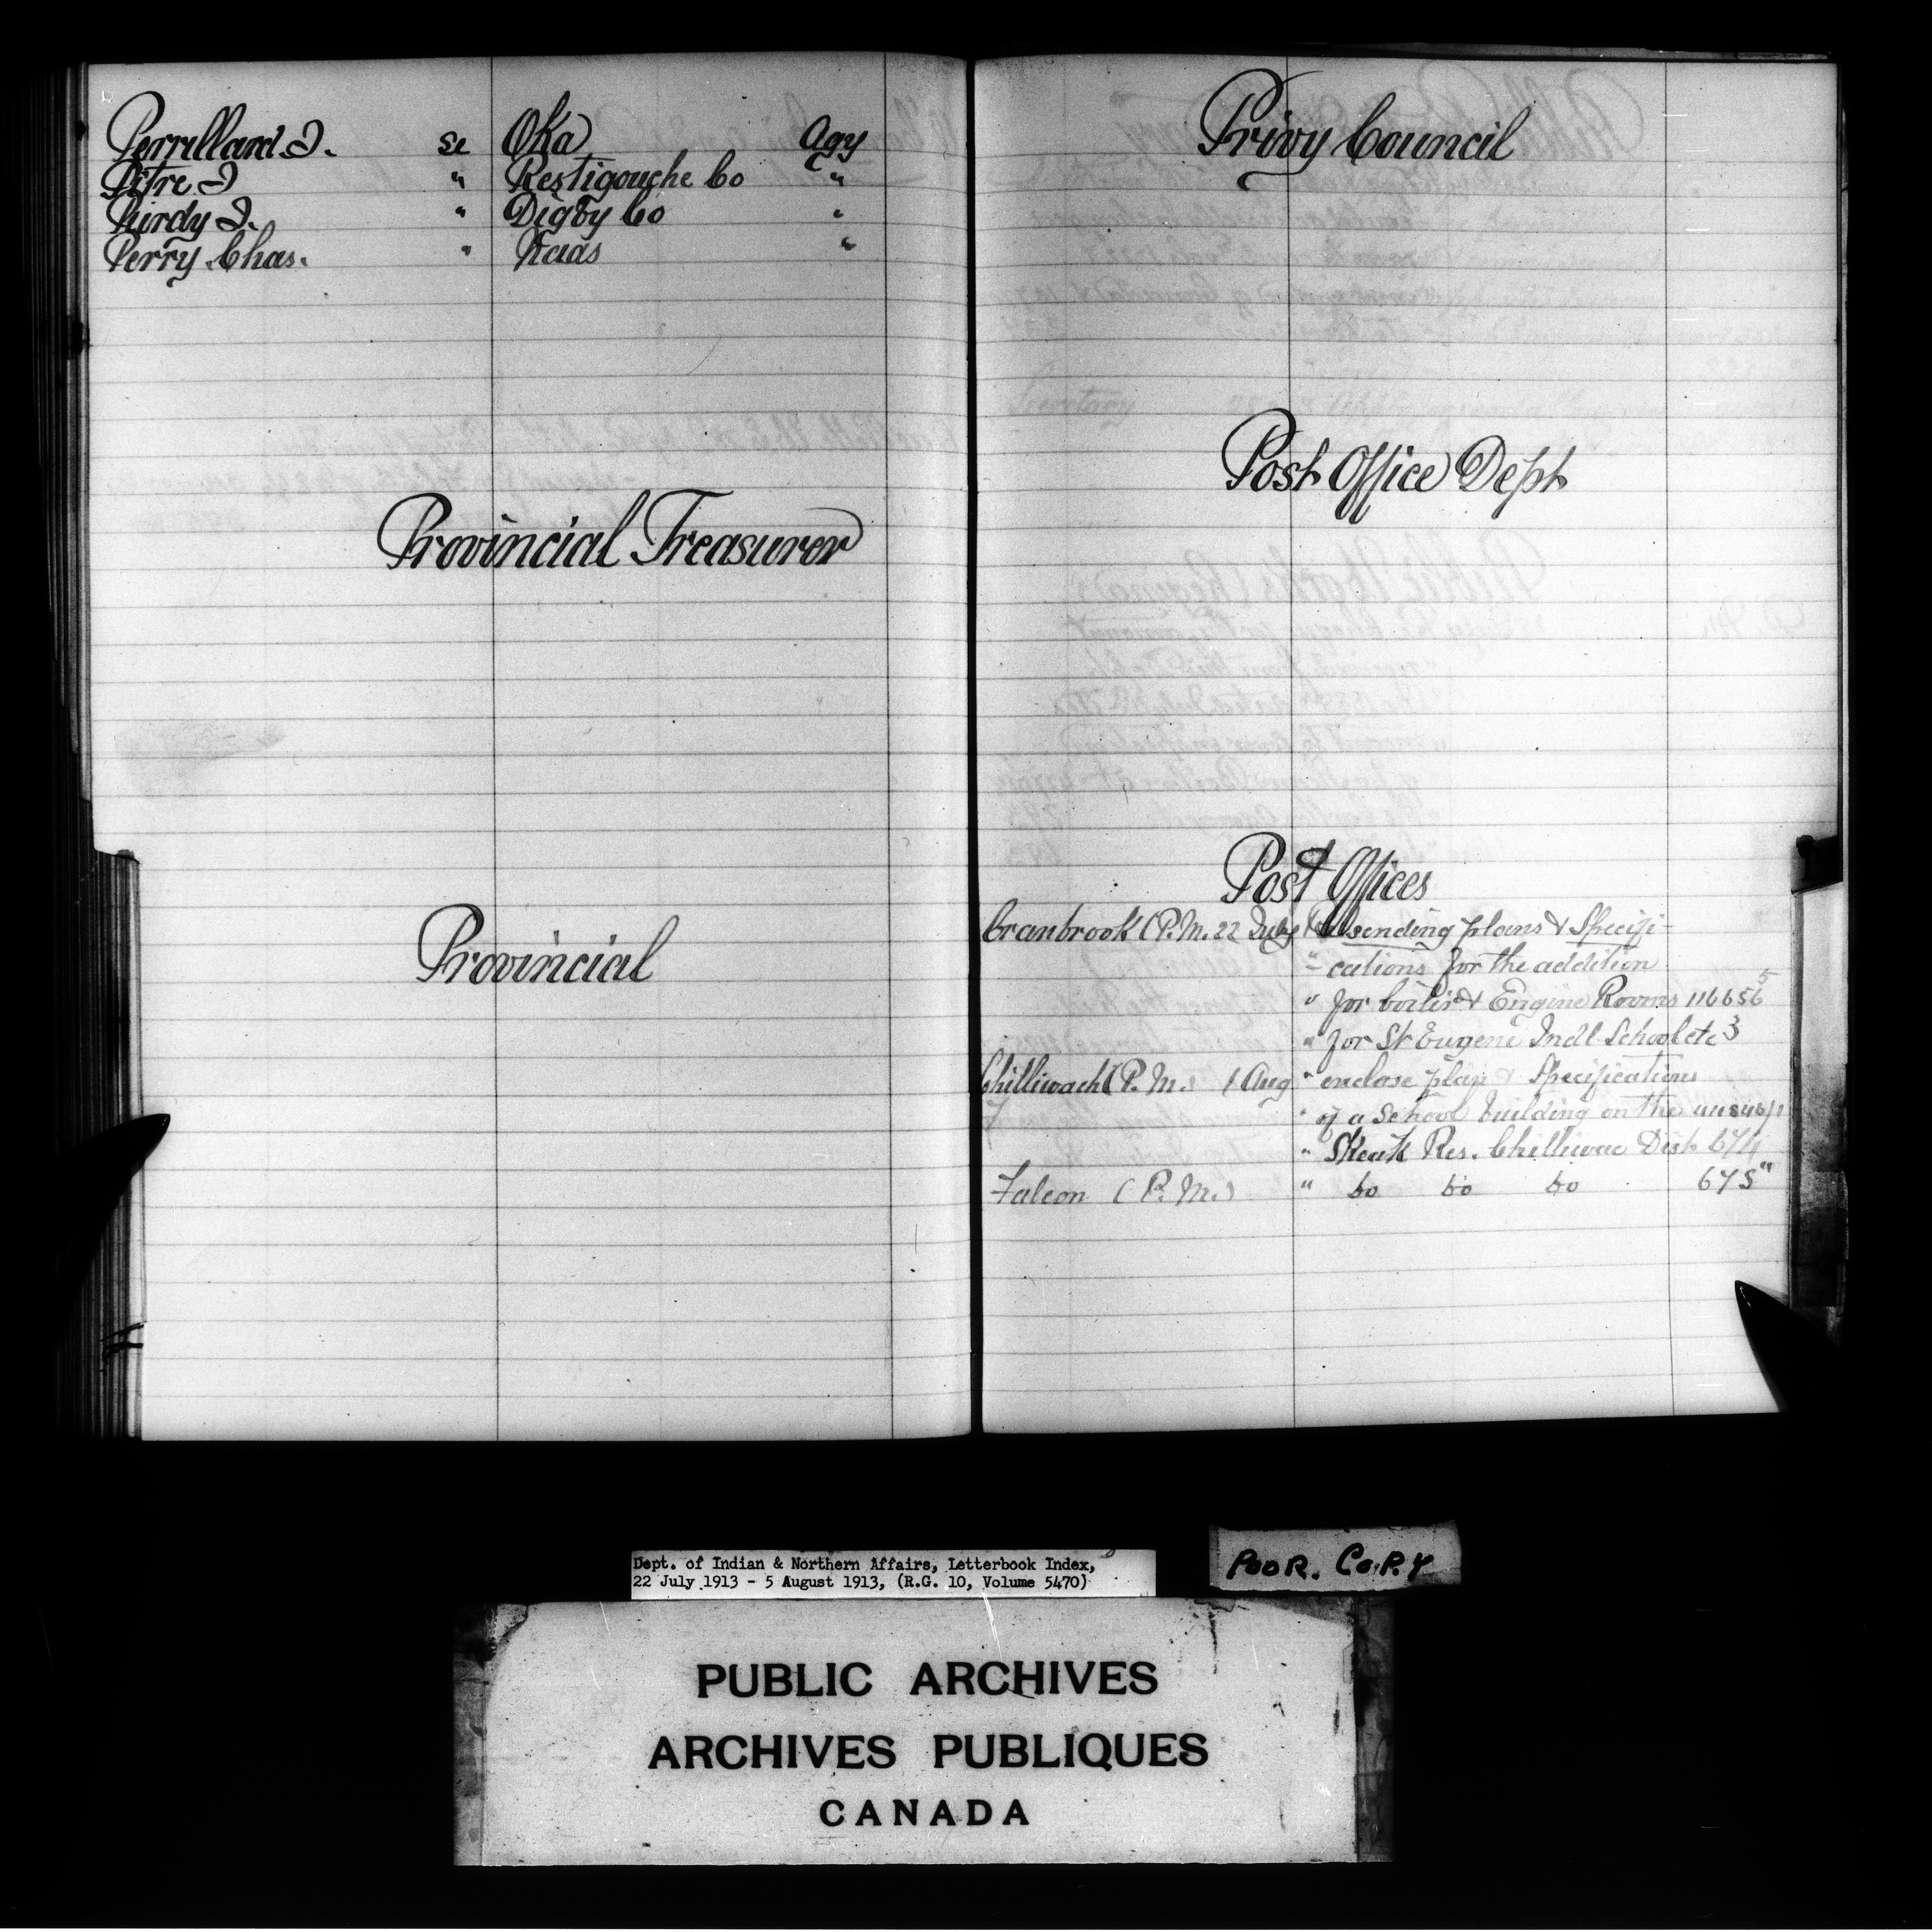 Perrillard J. se Oka Agy
Pitre J " Restigouche Co "
Purdy J. " Digby Co "
Perry Chas. " Naas "
Provincial Treasurer
Provincial
Privy Council
Post Office Dept
Post Offices
Cranbrook (P.M. 22 July sending plans & Specifi-
" cations for the addition
" for boiler & Engine Rooms 116656 5
" for St Eugene Indl School etc 3
Chilliwack (P.M.) 1 Aug " enclose plan & Specifications
" of a School building on the
" Skeuk Res. Chilliwac Dist 674
Falcon (P.M.) " Do Do Do 675"
Dept. of Indian & Northern Affairs, Letterbook Index,
22 July 1913 - 5 August 1913, (R.G. 10, Volume 5470)
POOR. COPY
PUBLIC ARCHIVES
ARCHIVES PUBLIQUES
CANADA